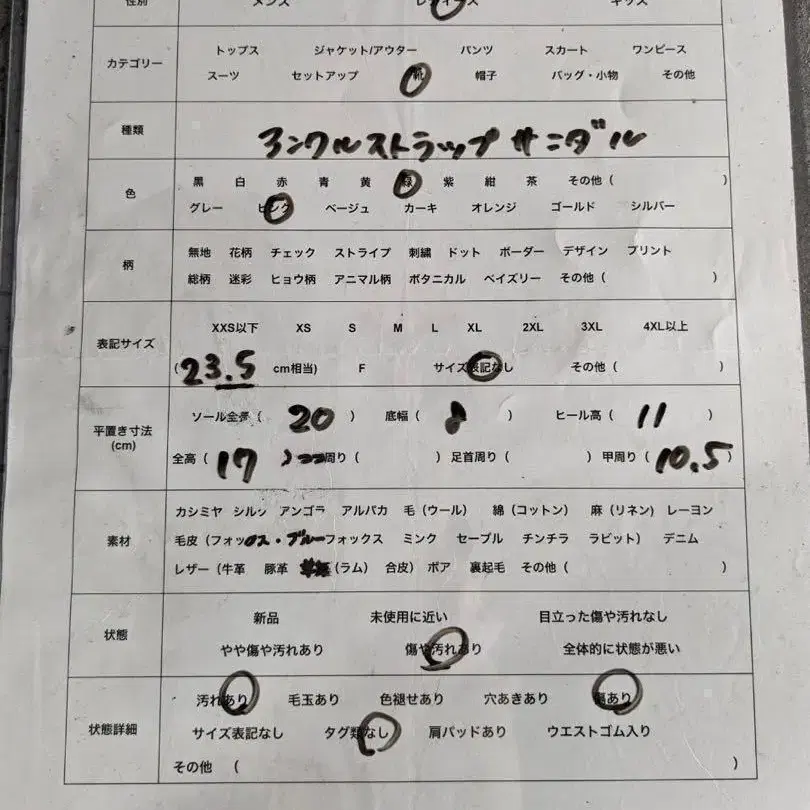 性別 メンズ レディース キッズ
カテゴリー
トップス ジャケット/アウター パンツ スカート ワンピース
スーツ セットアップ 靴 帽子 バッグ・小物 その他
種類 アンクルストラップ サンダル
色
黒 白 赤 青 黄 緑 紫 紺 茶 その他 ( )
グレー ピンク ベージュ カーキ オレンジ ゴールド シルバー
柄
無地 花柄 チェック ストライプ 刺繍 ドット ボーダー デザイン プリント
総柄 迷彩 ヒョウ柄 アニマル柄 ボタニカル ペイズリー その他 ( )
表記サイズ
XXS以下 XS S M L XL 2XL 3XL 4XL以上
(23.5 cm相当) F サイズ表記なし その他 ( )
平置き寸法
(cm)
ソール全長 ( 20 ) 底幅 ( ) ヒール高 ( 11 )
全高 ( 17 周り ( ) 足首周り ( ) 甲周り ( 10.5 )
素材
カシミヤ シルク アンゴラ アルパカ 毛 (ウール) 綿 (コットン) 麻 (リネン) レーヨン
毛皮 (フォックス・ブルーフォックス ミンク セーブル チンチラ ラビット) デニム
レザー (牛革 豚革 (ラム) 合皮) ボア 裏起毛 その他 ( )
状態
新品 未使用に近い 目立った傷や汚れなし
やや傷や汚れあり 傷や汚れあり 全体的に状態が悪い
状態詳細
汚れあり 毛玉あり 色褪せあり 穴あきあり 傷あり
サイズ表記なし タグ類なし 肩パッドあり ウエストゴム入り
その他 ( )